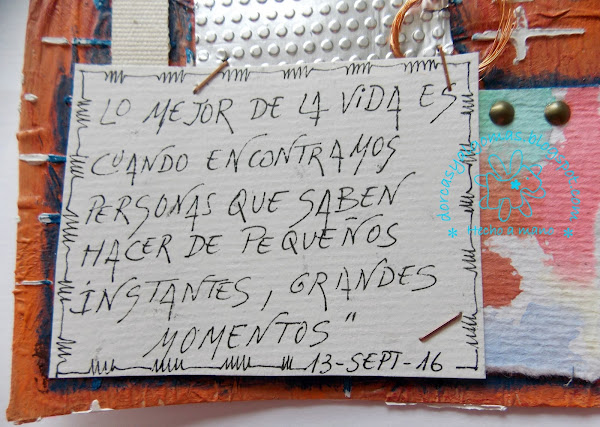 LO MEJOR DE LA VIDA ES
CUANDO ENCONTRAMOS
PERSONAS QUE SABEN
HACER DE PEQUEÑOS
INSTANTES, GRANDES
MOMENTOS"
13-SEPT-16
* Hecho a mano *